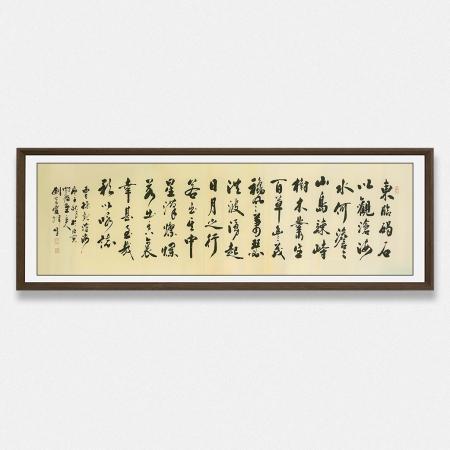 東臨碣石
以觀滄海
水何澹々
山島竦峙
樹木叢生
百草丰茂
秋風蕭瑟
洪波湧起
日月之行
若出其中
星漢燦爛
若出其裏
幸甚至哉
歌以詠志